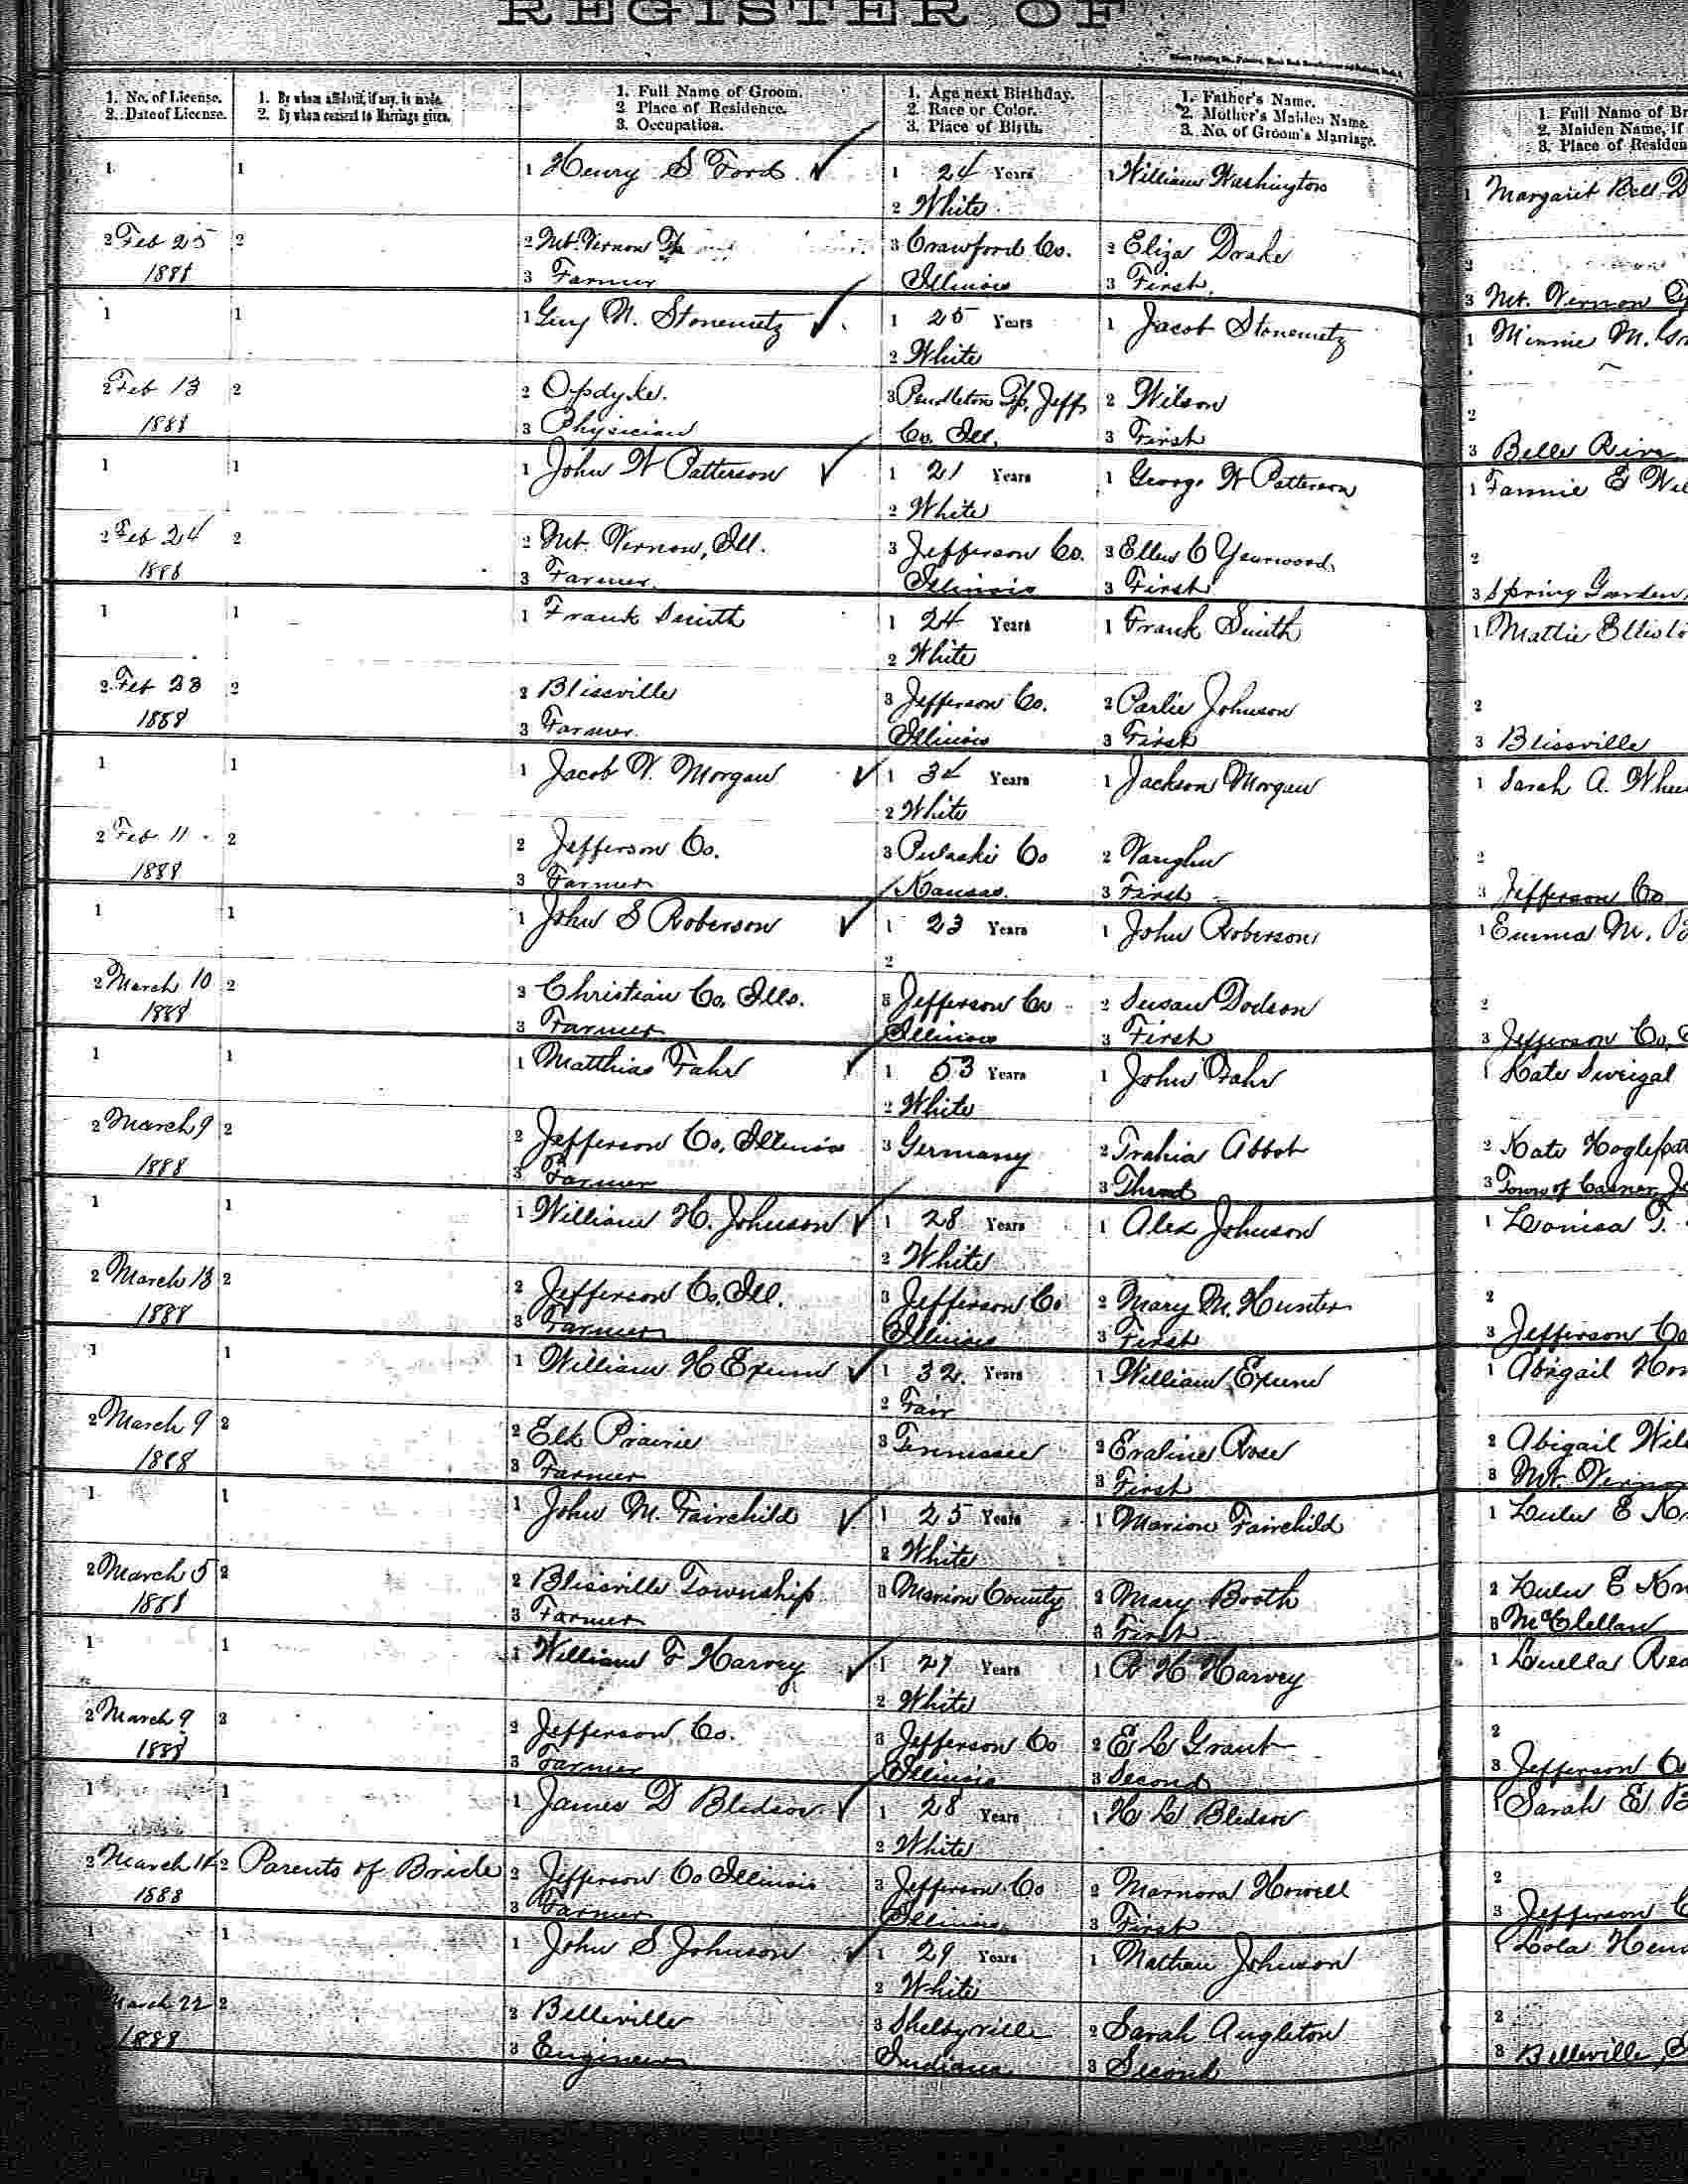 REGISTER OF
1. No. of License.
2. Date of License.
1. By whom affidavit, if any, is made.
2. By whom consent to Marriage given.
1. Full Name of Groom.
2 Place of Residence.
3. Occupation.
1. Age next Birthday.
2. Race or Color.
3. Place of Birth.
1. Father's Name.
2. Mother's Maiden Name.
3. No. of Groom's Marriage.
1. Full Name of Br
2. Maiden Name, if
3. Place of Residen
1 1 1 Henry S Ford 1 24 Years 1 William Washington 1 Margarit Bell D
2 White
2 Feb 25 2 2 Mt. Vernon Tp 3 Crawford Co. 2 Eliza Drake 2
1888 3 Farmer Illinois 3 First. 3 Mt. Vernon
1 1 1 Guy N. Stonemetz 1 25 Years 1 Jacob Stonemetz 1 Minnie M.
2 White
2 Feb 13 2 2 Opdyke. 3 Pendleton Tp, Jeff 2 Wilson 2
1888 3 Physician Co. Ill. 3 First 3 Belle Rive
1 1 1 John W Patterson 1 21 Years 1 George W Patterson 1 Fannie E Wil
2 White
2 Feb 24 2 2 Mt. Vernon, Ill. 3 Jefferson Co. 3 Ellen C Yearwood 2
1888 3 Farmer. Illinois 3 First 3 Spring Garden
1 1 1 Frank Smith 1 24 Years 1 Frank Smith 1 Mattie
2 White
2 Feb 23 2 2 Blissville 3 Jefferson Co. 2 Carlie Johnson 2
1888 3 Farmer. Illinois 3 First 3 Blissville
1 1 1 Jacob V. Morgan 1 34 Years 1 Jackson Morgan 1 Sarah A. Whe
2 White
2 Feb 11 2 2 Jefferson Co. 3 Pulaski Co 2 Vaughn 2
1888 3 Farmer Kansas. 3 First 3 Jefferson Co
1 1 1 John S Roberson 1 23 Years 1 John Roberson 1 Emma M.
2
2 March 10 2 2 Christian Co, Ills. 3 Jefferson Co 2 Susan Dodson 2
1888 3 Farmer Illinois 3 First 3 Jefferson Co,
1 1 1 Matthias Fahr 1 53 Years 1 John Fahr 1 Kate Sweigal
2 White
2 March 9 2 2 Jefferson Co, Illinois 3 Germany 2 Trahia Abbot 2 Kate
1888 3 Farmer 3 Third 3 Town of Casner, Je
1 1 1 William H. Johnson 1 28 Years 1 Alex Johnson 1 Louisa T.
2 White
2 March 13 2 2 Jefferson Co, Ill. 3 Jefferson Co 2 Mary M. Hunter 2
1888 3 Farmer Illinois 3 First 3 Jefferson Co
1 1 1 William H Exum 1 32 Years 1 William Exum 1 Abigail Hor
2 Fair
2 March 9 2 2 Elk Prairie 3 Tennessee 2 Eraline Rose 2 Abigail Wil
1888 3 Farmer 3 First 3 Mt. Vernon
1 1 1 John M. Fairchild 1 25 Years 1 Marion Fairchild 1 Lulu E Kn
2 White
2 March 5 2 2 Blissville Township 3 Marion County 2 Mary Booth 2 Lulu E Kn
1888 3 Farmer 3 First 3 McClellan
1 1 1 William F Harvey 1 27 Years 1 R H Harvey 1 Luella Rea
2 White
2 March 9 2 2 Jefferson Co. 3 Jefferson Co 2 E L Grant 2
1888 3 Farmer Illinois 3 Second 3 Jefferson Co
1 1 1 James D Bledsow 1 28 Years 1 H L Bledsow 1 Sarah E B
2 White
2 March 14 2 Parents of Bride 2 Jefferson Co Illinois 3 Jefferson Co 2 Marnora Howell 2
1888 3 Farmer Illinois 3 First 3 Jefferson C
1 1 1 John S Johnson 1 29 Years 1 Nathan Johnson 1 Lola Hend
2 White
March 22 2 2 Belleville 3 Shelbyville 2 Sarah Angleton 2
1888 3 Engineer Indiana 3 Second 3 Belleville,